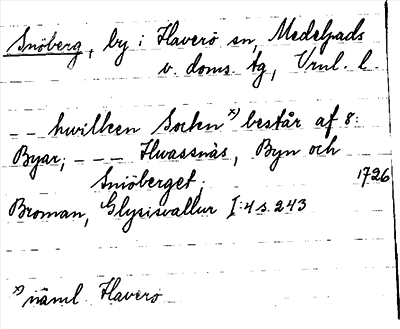 Snöberg, by i Haverö sn, Medelpads
v. doms. tg, Vrnl. l.
__ hwilken Sockn x) består af 8:
Byar; --- Hwassnäs, Byn och
Snöberget.
1726
Broman, Glysisvallur I:4 s. 243
x) näml. Haverö